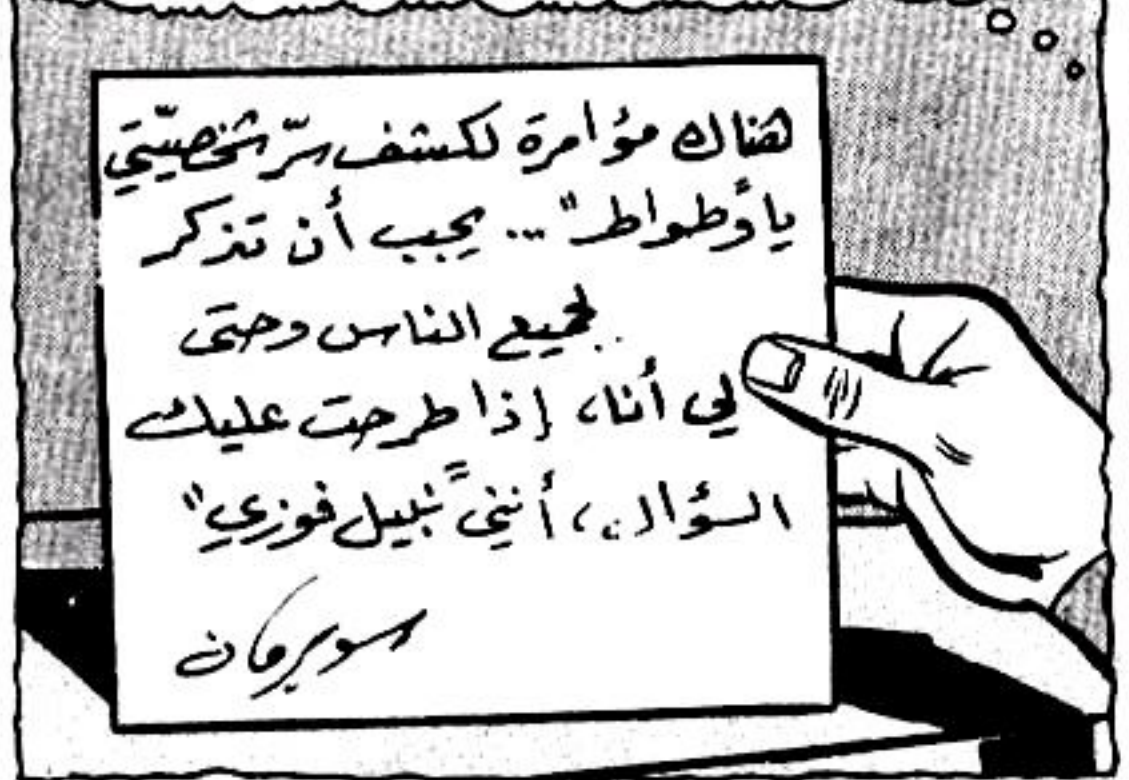 هناك مؤامرة لكشف سرّ شخصيّتي
يا "وطواط"... يجب أن تذكر
لجميع الناس وحتى
لي أنا، إذا طرحت عليك
السؤال، أنني "نبيل فوزي"
سوبرمان